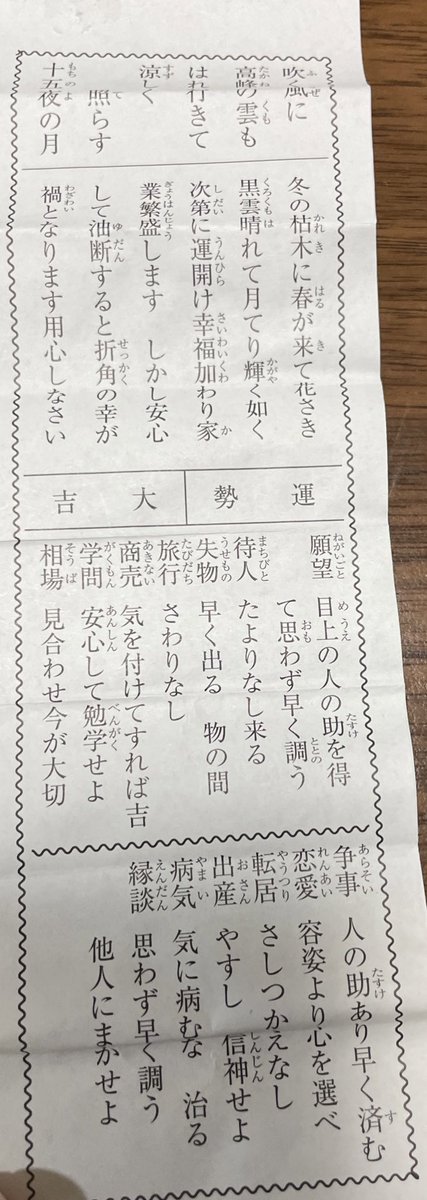 吹風に
高峰の雲も
はれ行きて
涼しく
照らす
十五夜の月
冬の枯木に春が来て花さき
黒雲晴れて月てり輝く如く
次第に運開け幸福加わり家
業繁盛します しかし安心
して油断すると折角の幸が
禍となります用心しなさい
運勢 大吉
願望 目上の人の助を得
て思わず早く調う
待人 たよりなし来る
失物 早く出る 物の間
旅行 さわりなし
商売 気を付けてすれば吉
学問 安心して勉学せよ
相場 見合わせ今が大切
争事 人の助あり早く済む
恋愛 容姿より心を選べ
転居 さしつかえなし
出産 やすし 信神せよ
病気 気に病むな 治る
縁談 思わず早く調う
他人にまかせよ